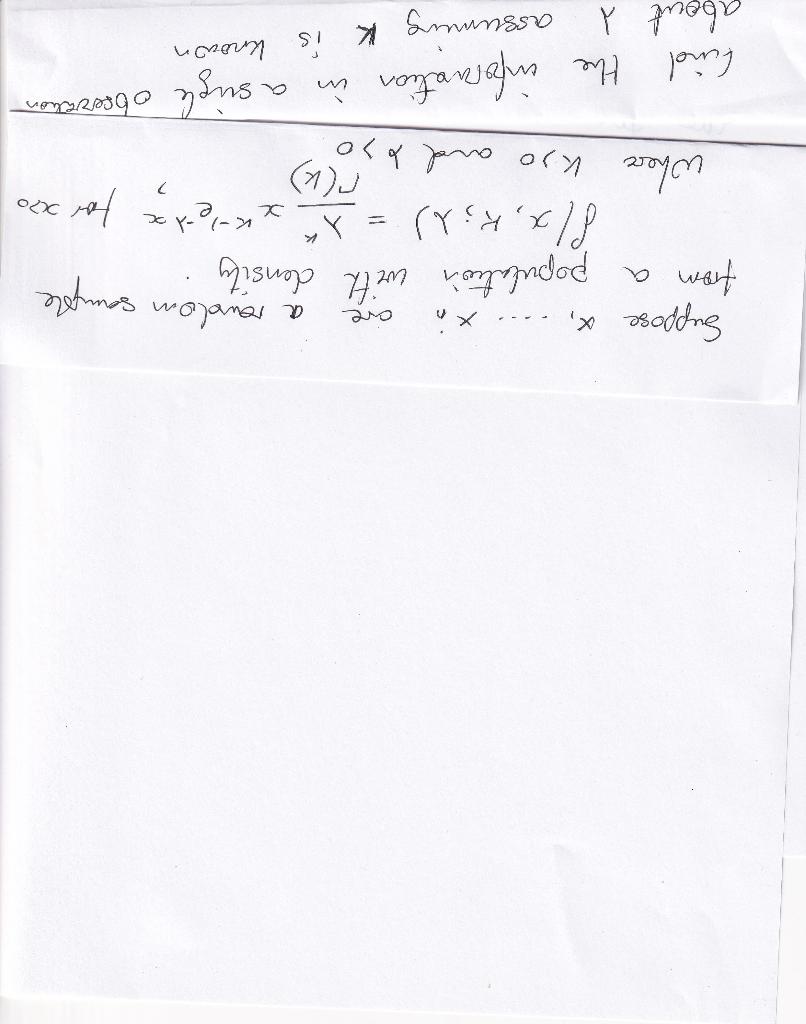 Suppose x₁ .... xₙ are a random sample
from a population with density.
f(x, k; λ) = λᵏ/Γ(k) xᵏ⁻¹e⁻λx, for x>0
where k>0 and λ>0
find the information in a single observation
about λ assuming k is known